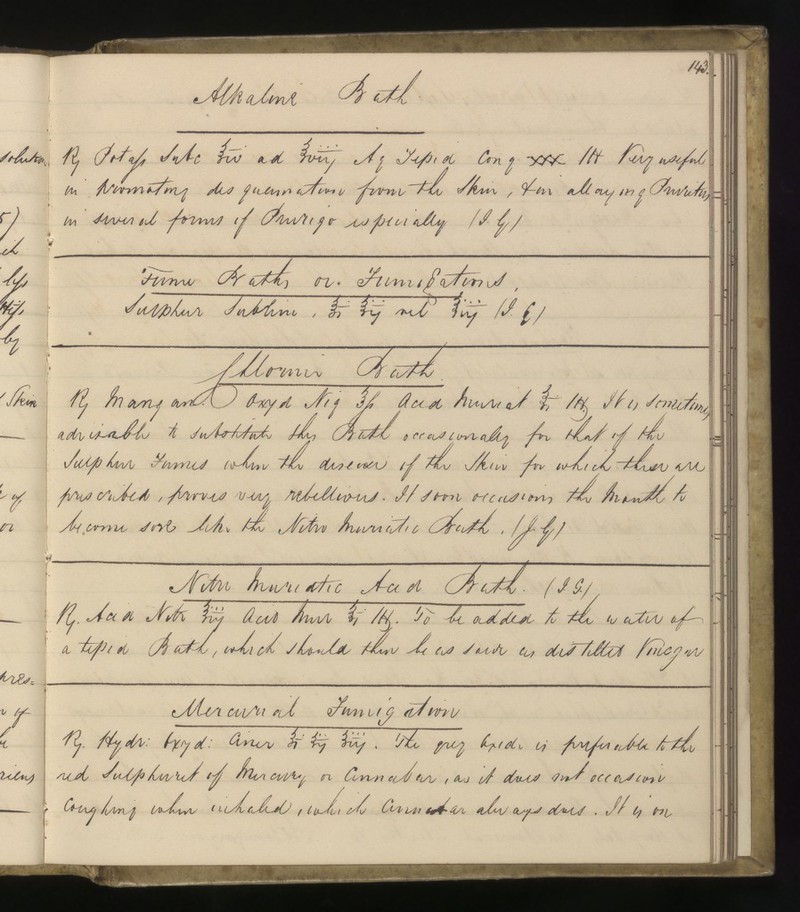 143.
Alkaline Bath
℞ Potass Subc ℥iv ad ℥viij Aq Tepid Cong xxx M Very useful
in promoting desquamation from the Skin, & in allaying Pruritus
in several forms of Prurigo especially (J. G)
Fume Baths or Fumigations.
Sulphur Sublim, ℥i ℥ij vel ℥iij (J. G)
Chlorine Bath
℞ Mangan Oxyd Nig ℥ss Acid Muriat ℥i M It is sometimes
advisable to substitute this Bath occasionally for that of the
Sulphur Fumes when the disease of the Skin for which these are
prescribed, proves very rebellious. It soon occasions the Mouth to
become sore like the Nitro Muriatic Bath. (J. G)
Nitro Muriatic Acid Bath. (J G)
℞. Acid Nitr ℥iij Acid Mur ℥i M. To be added to the water of
a tepid Bath, which should then be as sour as distilled Vinegar
Mercurial Fumigation
℞. Hydr: Oxyd: Ciner ℥i ℥ij ℥iij. The grey Oxide is preferable to the
red Sulphuret of Mercury or Cinnabar, as it does not occasion
Coughing when inhaled, which Cinnabar always does. It is on